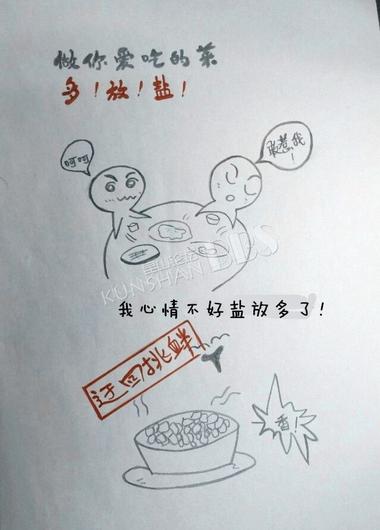 做你爱吃的菜
多！放！盐！
呵呵
敢惹我！
昆山论坛
KUNSHAN BBS
我心情不好盐放多了！
迂回挑衅
香！